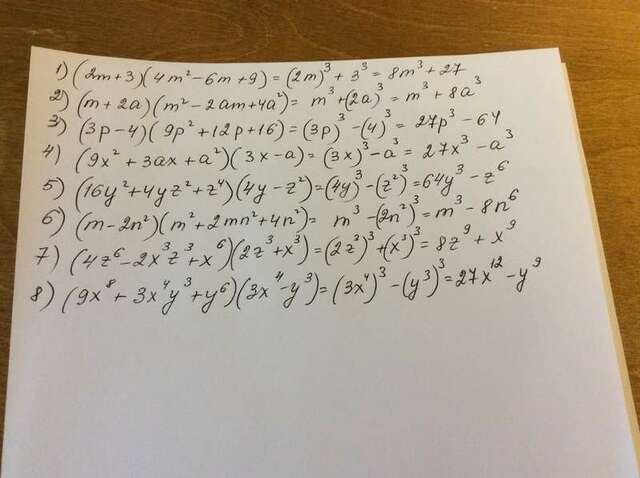 1) (2m+3)(4m²-6m+9)=(2m)³+3³=8m³+27
2) (m+2a)(m²-2am+4a²)= m³+(2a)³=m³+8a³
3) (3p-4)(9p²+12p+16)=(3p)³-(4)³=27p³-64
4) (9x²+3ax+a²)(3x-a)=(3x)³-a³=27x³-a³
5) (16y²+4yz²+z⁴)(4y-z²)=(4y)³-(z²)³=64y³-z⁶
6) (m-2n²)(m²+2mn²+4n²)= m³-(2n²)³=m³-8n⁶
7) (4z⁶-2x³z³+x⁶)(2z³+x³)=(2z³)³+(x³)³=8z⁹+x⁹
8) (9x⁸+3x⁴y³+y⁶)(3x⁴-y³)=(3x⁴)³-(y³)³=27x¹²-y⁹